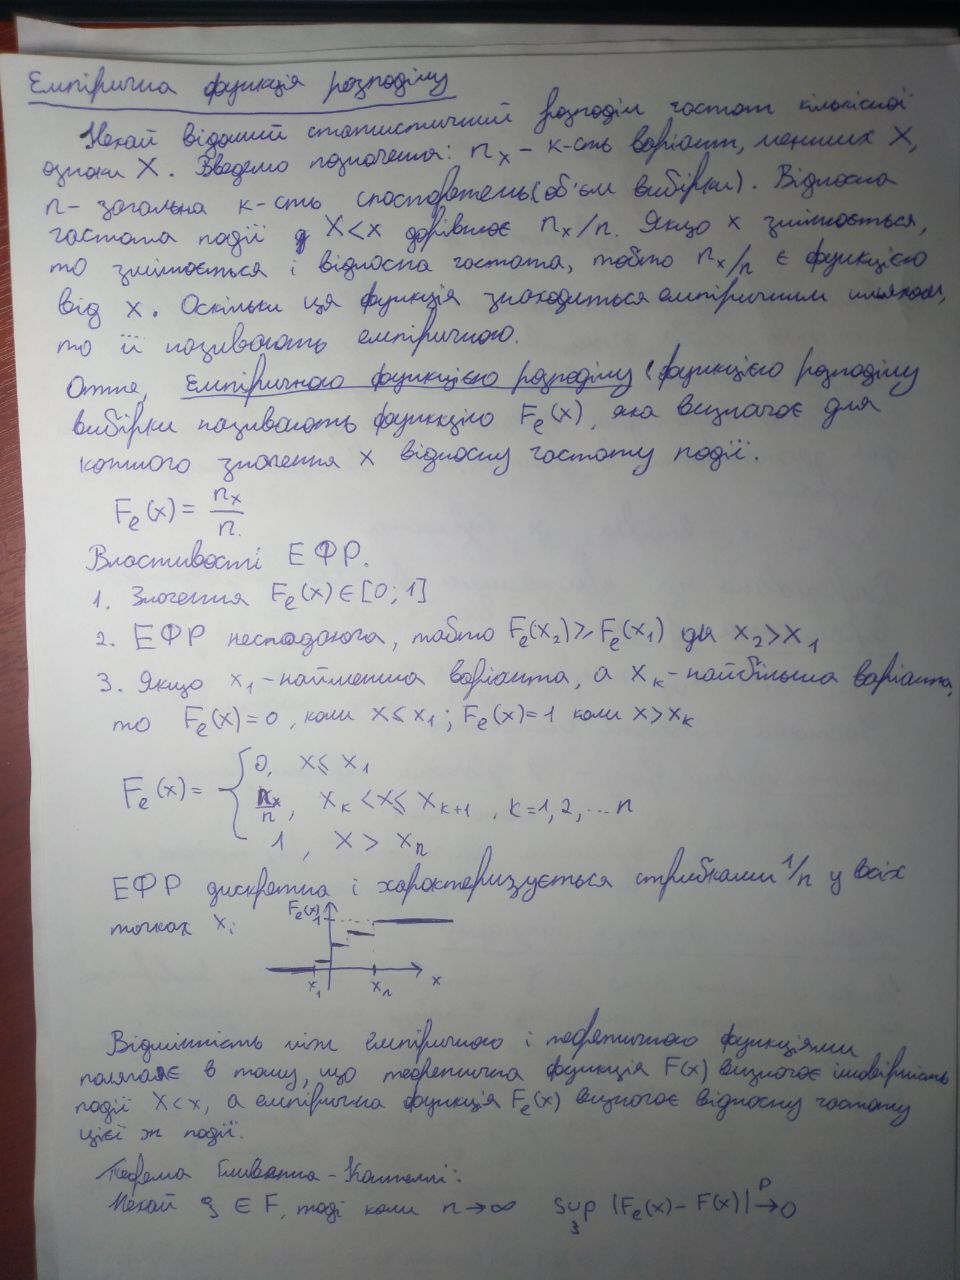 Емпірична функція розподілу
Нехай відомий статистичний розподіл частот кількісної
ознаки X. Введемо позначення: nₓ – к-сть варіант, менших X,
n – загальна к-сть спостережень (об'єм вибірки). Відносна
частота події X < x дорівнює nₓ/n. Якщо x змінюється,
то змінюється і відносна частота, тобто nₓ/n є функцією
від x. Оскільки ця функція знаходиться емпіричним шляхом,
то її називають емпіричною.
Отже, Емпіричною функцією розподілу (функцією розподілу
вибірки називають функцію Fₑ(x), яка визначає для
кожного значення x відносну частоту події.
Fₑ(x) = nₓ/n.
Властивості ЕФР.
1. Значення Fₑ(x) ∈ [0; 1]
2. ЕФР неспадаюча, тобто Fₑ(x₂) ≥ Fₑ(x₁) для x₂ > x₁
3. Якщо x₁ – найменша варіанта, а xₖ – найбільша варіанта,
то Fₑ(x) = 0, коли x ≤ x₁; Fₑ(x) = 1 коли x > xₖ
0, x ≤ x₁
Fₑ(x) = { nₓ/n, xₖ < x ≤ xₖ₊₁, k = 1, 2, ... n
1, x > xₙ
ЕФР дискретна і характеризується стрибками 1/n у всіх
точках xᵢ
Fₑ(x)
1
x₁ xₙ x
Відмінність між емпіричною і теоретичною функціями
полягає в тому, що теоретична функція F(x) визначає імовірність
події X < x, а емпірична функція Fₑ(x) визначає відносну частоту
цієї ж події.
Теорема Гливенка – Кантеллі:
Нехай ξ ∈ F, тоді коли n → ∞ Sup |Fₑ(x) – F(x)| →ᴾ 0